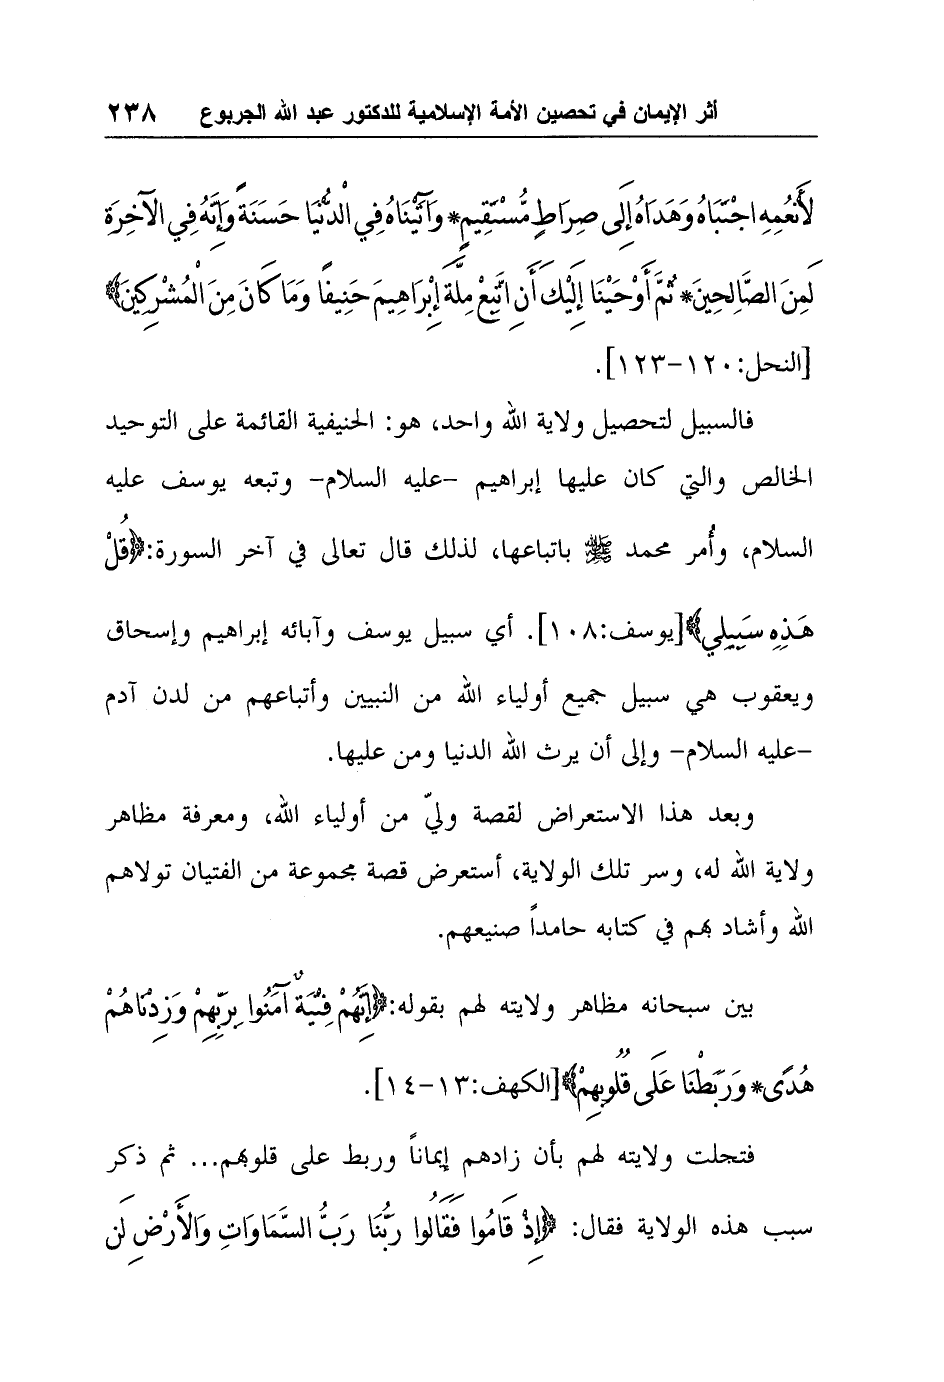 أثر الإيمان في تحصين الأمة الإسلامية للدكتور عبد الله الجربوع ٢٣٨
لِأَنْعُمِهِ اجْتَبَاهُ وَهَدَاهُ إِلَى صِرَاطٍ مُسْتَقِيمٍ* وَآتَيْنَاهُ فِي الدُّنْيَا حَسَنَةً وَإِنَّهُ فِي الْآخِرَةِ
لَمِنَ الصَّالِحِينَ* ثُمَّ أَوْحَيْنَا إِلَيْكَ أَنِ اتَّبِعْ مِلَّةَ إِبْرَاهِيمَ حَنِيفًا وَمَا كَانَ مِنَ الْمُشْرِكِينَ﴾
[النحل:١٢٠-١٢٣].
فالسبيل لتحصيل ولاية الله واحد، هو: الحنيفية القائمة على التوحيد
الخالص والتي كان عليها إبراهيم -عليه السلام- وتبعه يوسف عليه
السلام، وأُمر محمد ﷺ باتباعها، لذلك قال تعالى في آخر السورة:﴿قُلْ
هَذِهِ سَبِيلِي﴾[يوسف:١٠٨]. أي سبيل يوسف وآبائه إبراهيم وإسحاق
ويعقوب هي سبيل جميع أولياء الله من النبيين وأتباعهم من لدن آدم
-عليه السلام- وإلى أن يرث الله الدنيا ومن عليها.
وبعد هذا الاستعراض لقصة وليّ من أولياء الله، ومعرفة مظاهر
ولاية الله له، وسر تلك الولاية، أستعرض قصة مجموعة من الفتيان تولاهم
الله وأشاد بهم في كتابه حامداً صنيعهم.
بين سبحانه مظاهر ولايته لهم بقوله:﴿إِنَّهُمْ فِتْيَةٌ آمَنُوا بِرَبِّهِمْ وَزِدْنَاهُمْ
هُدًى* وَرَبَطْنَا عَلَى قُلُوبِهِمْ﴾[الكهف:١٣-١٤].
فتجلت ولايته لهم بأن زادهم إيماناً وربط على قلوبهم... ثم ذكر
سبب هذه الولاية فقال: ﴿إِذْ قَامُوا فَقَالُوا رَبُّنَا رَبُّ السَّمَاوَاتِ وَالْأَرْضِ لَن